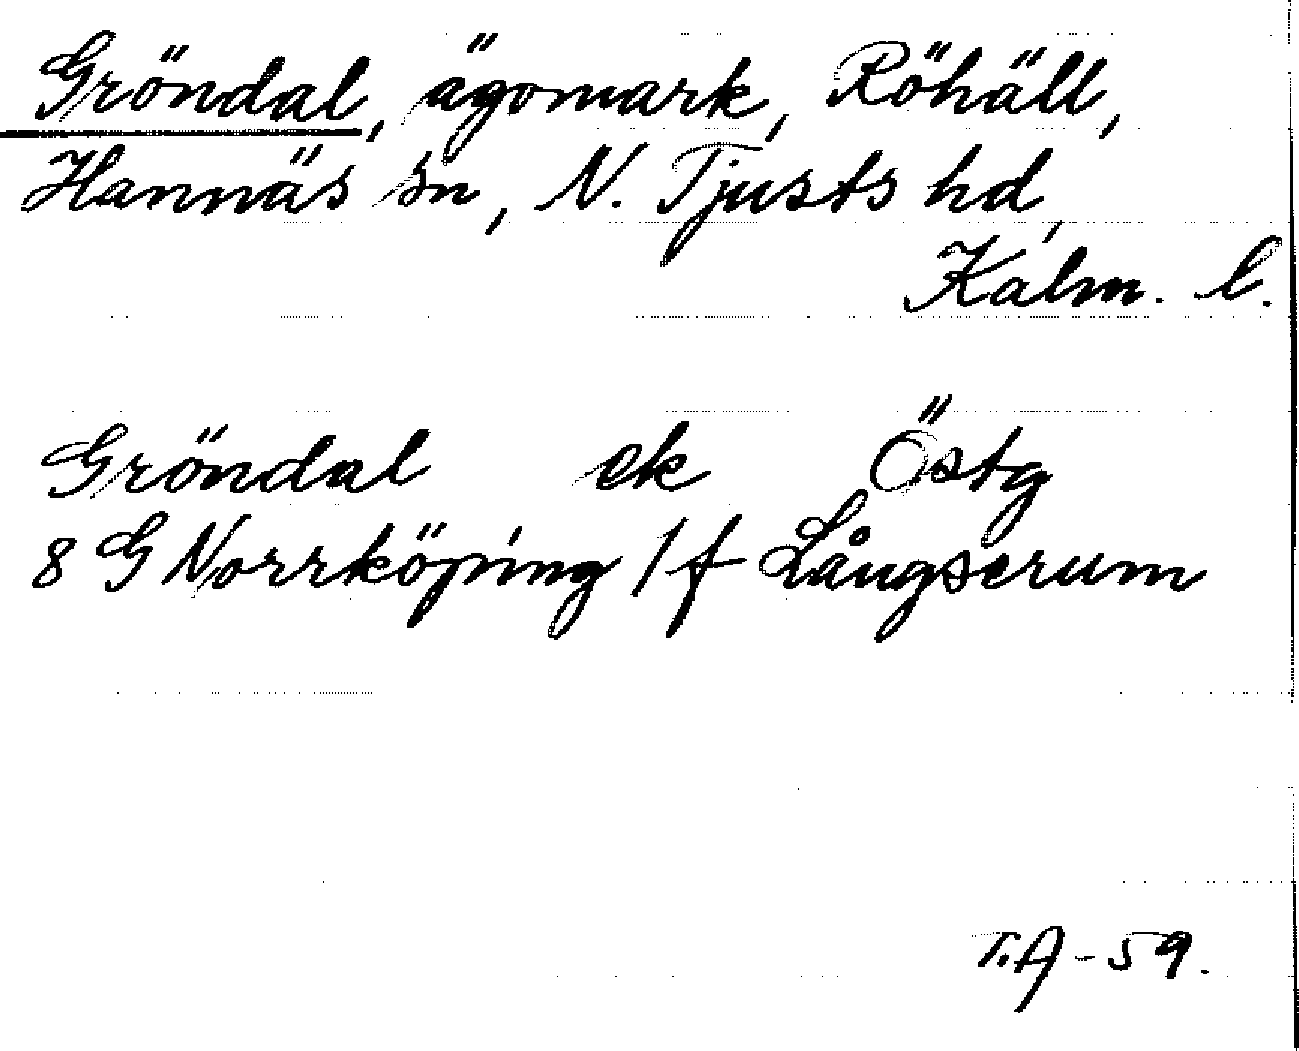 Gröndal, ägomark, Röhäll,
Hannäs sn, N. Tjusts hd,
Kalm. l.
Gröndal ek Östg
8 G Norrköping 1 f Långserum
T.A-59.